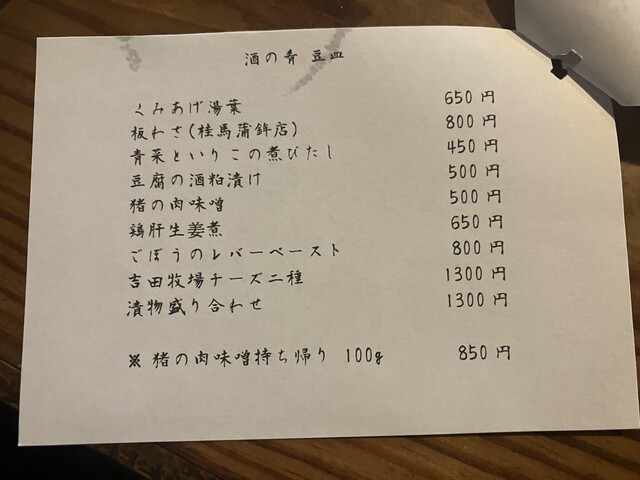 酒の肴 豆皿
くみあげ湯葉 650円
板わさ(桂馬蒲鉾店) 800円
青菜といりこの煮びたし 450円
豆腐の酒粕漬け 500円
猪の肉味噌 500円
鶏肝生姜煮 650円
ごぼうのレバーペースト 800円
吉田牧場チーズ二種 1300円
漬物盛り合わせ 1300円
※猪の肉味噌持ち帰り 100g 850円